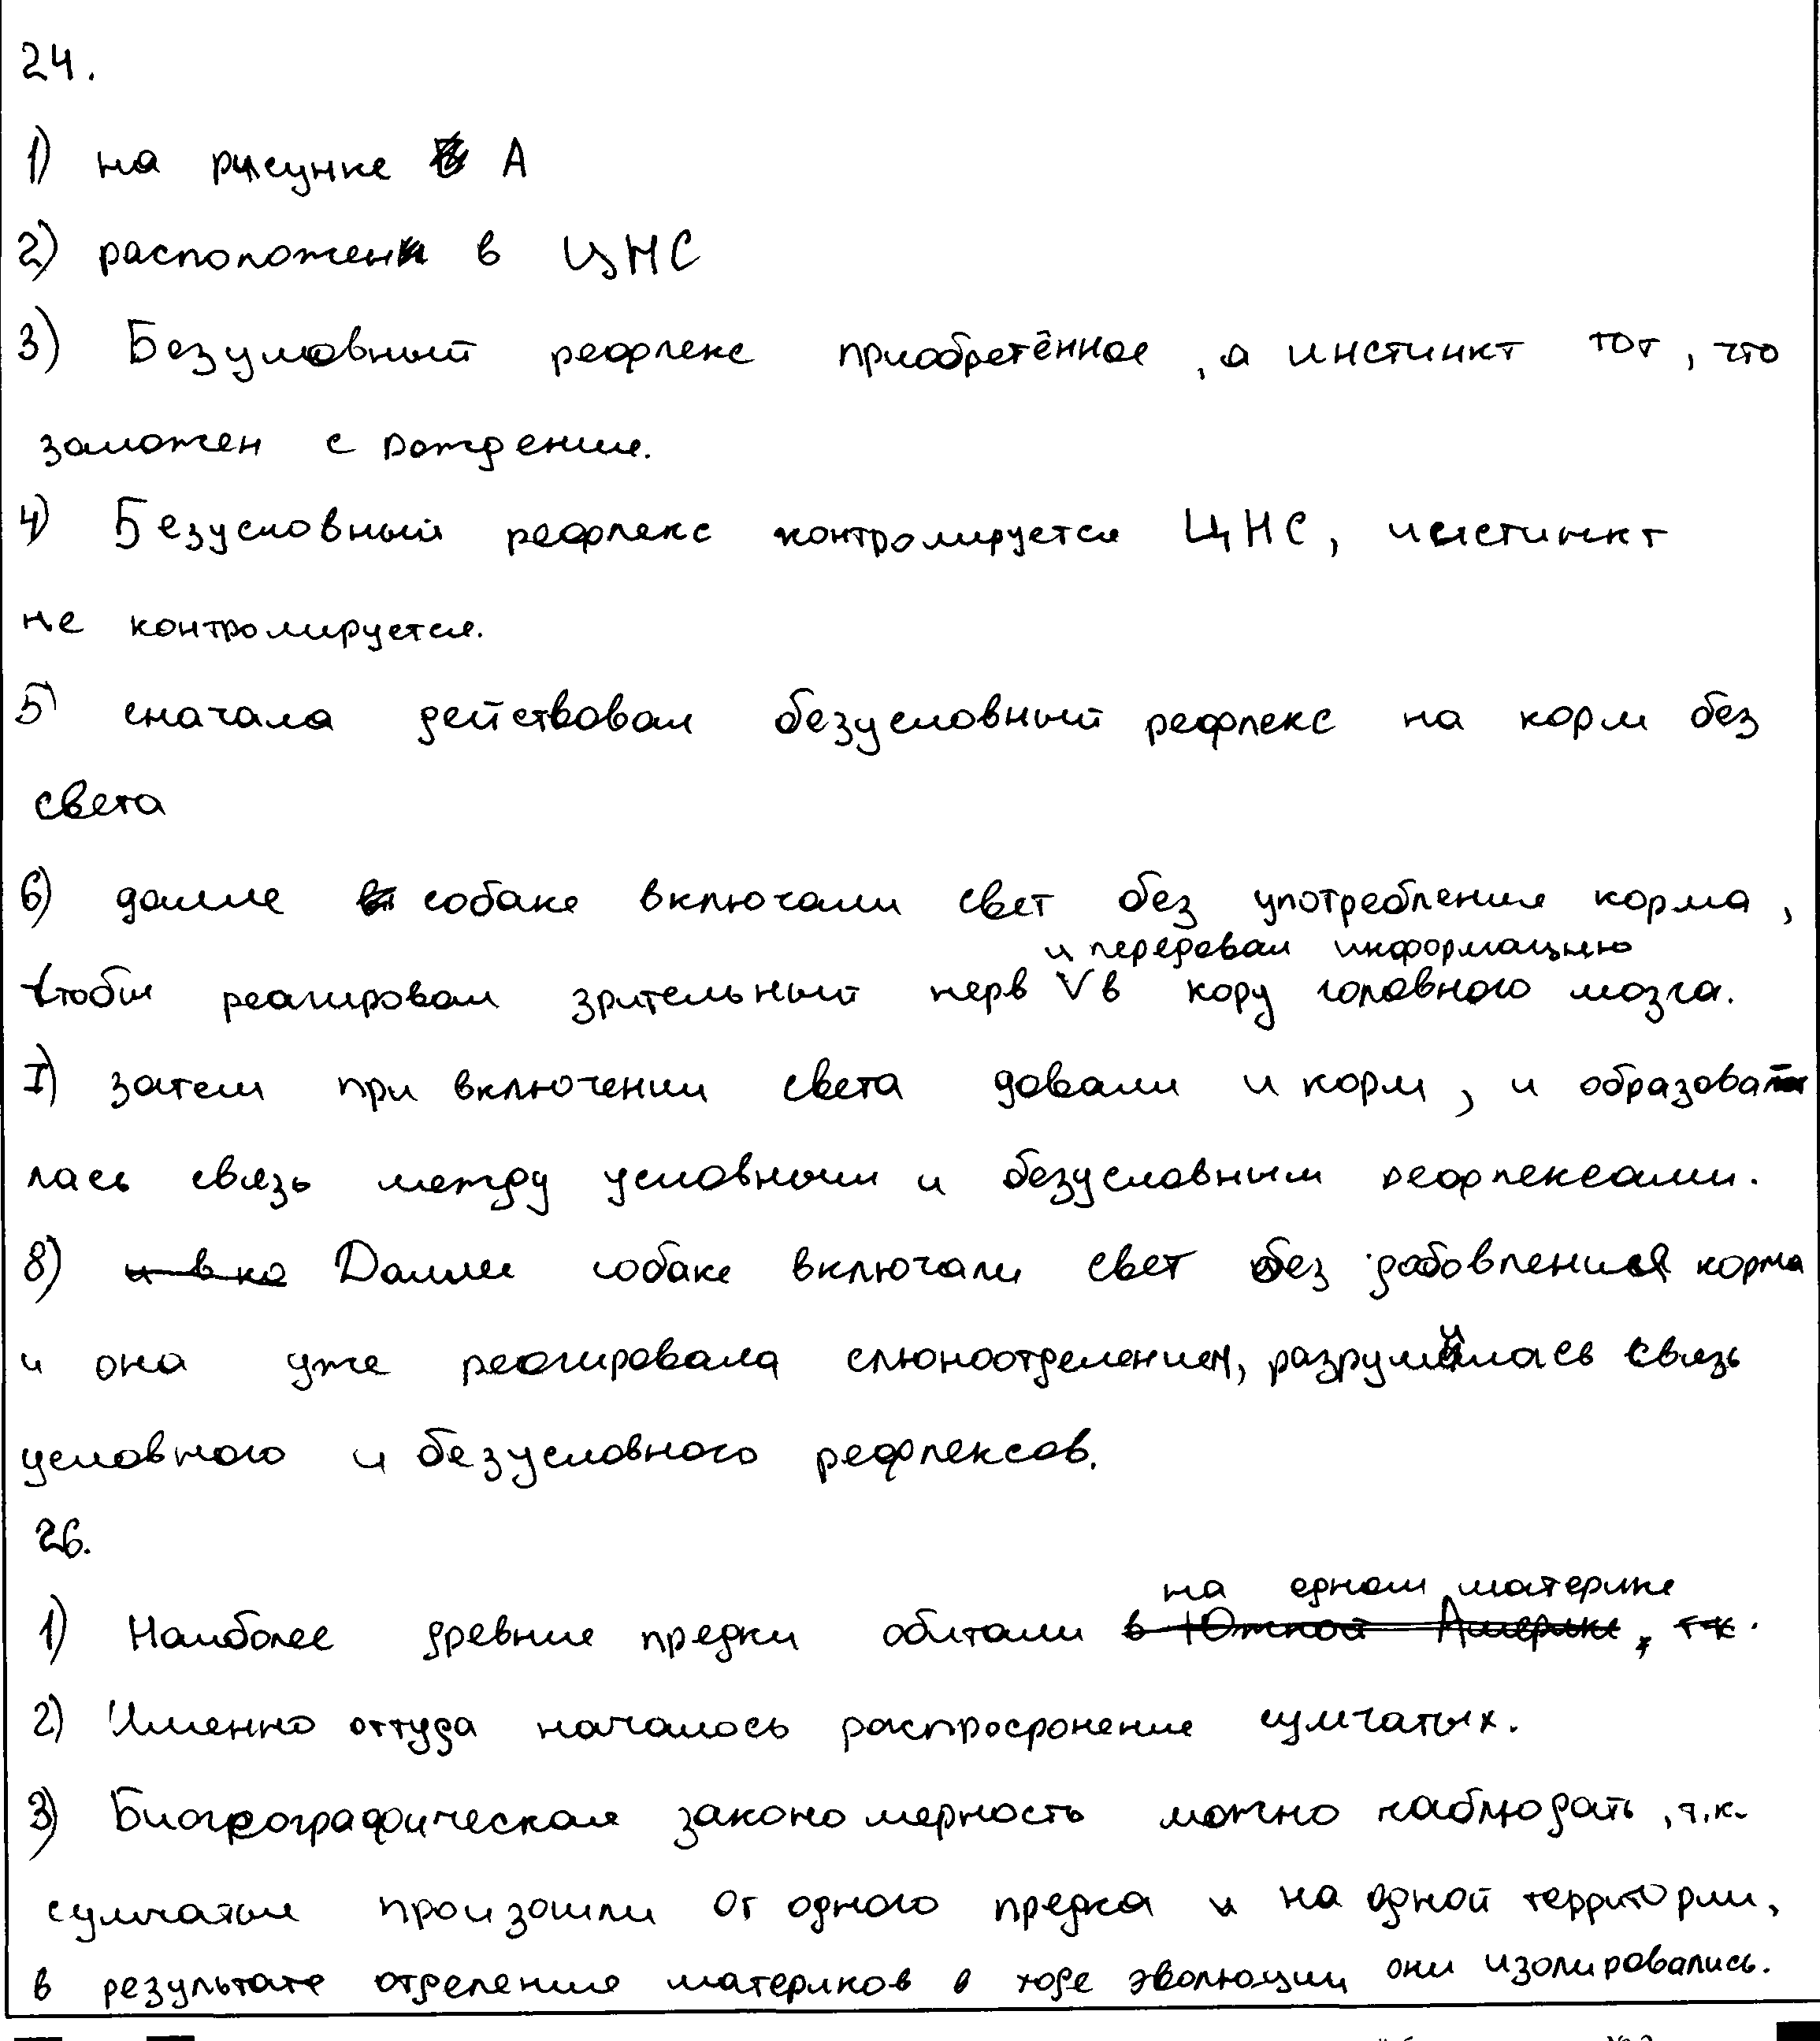 24.
1) на рисунке А
2) расположен в ЦНС
3) Безусловный рефлекс приобретённое, а инстинкт тот, что
заложен с рождения.
4) Безусловный рефлекс контролируется ЦНС, инстинкт
не контролируется.
5) сначала действовал безусловный рефлекс на корм без
света
6) далее собаке включали свет без употребления корма,
чтобы реагировал зрительный нерв и передавал информацию в кору головного мозга.
7) затем при включении света давали и корм, и образова
лась связь между условным и безусловным рефлексами.
8) Далее собаке включали свет без добовления корма
и она уже реагировала слюноотделением, разрушилась связь
условного и безусловного рефлексов.
26.
1) Наиболее древние предки обитали на одном материке.
2) Именно оттуда началось распросронение сумчатых.
3) Биогеографическая закономерность можно наблюдать, т.к.
сумчатые произошли от одного предка и на одной территории,
в результате отделения материков в ходе эволюции они изолировались.